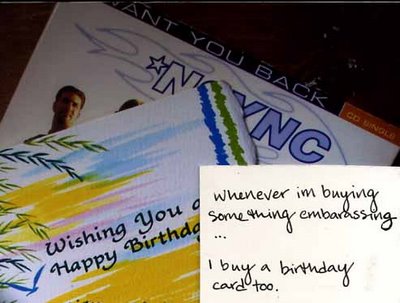 WANT YOU BACK
*NSYNC
CD SINGLE
Wishing You a
Happy Birthday
whenever im buying
something embarassing
...
I buy a birthday
card too.